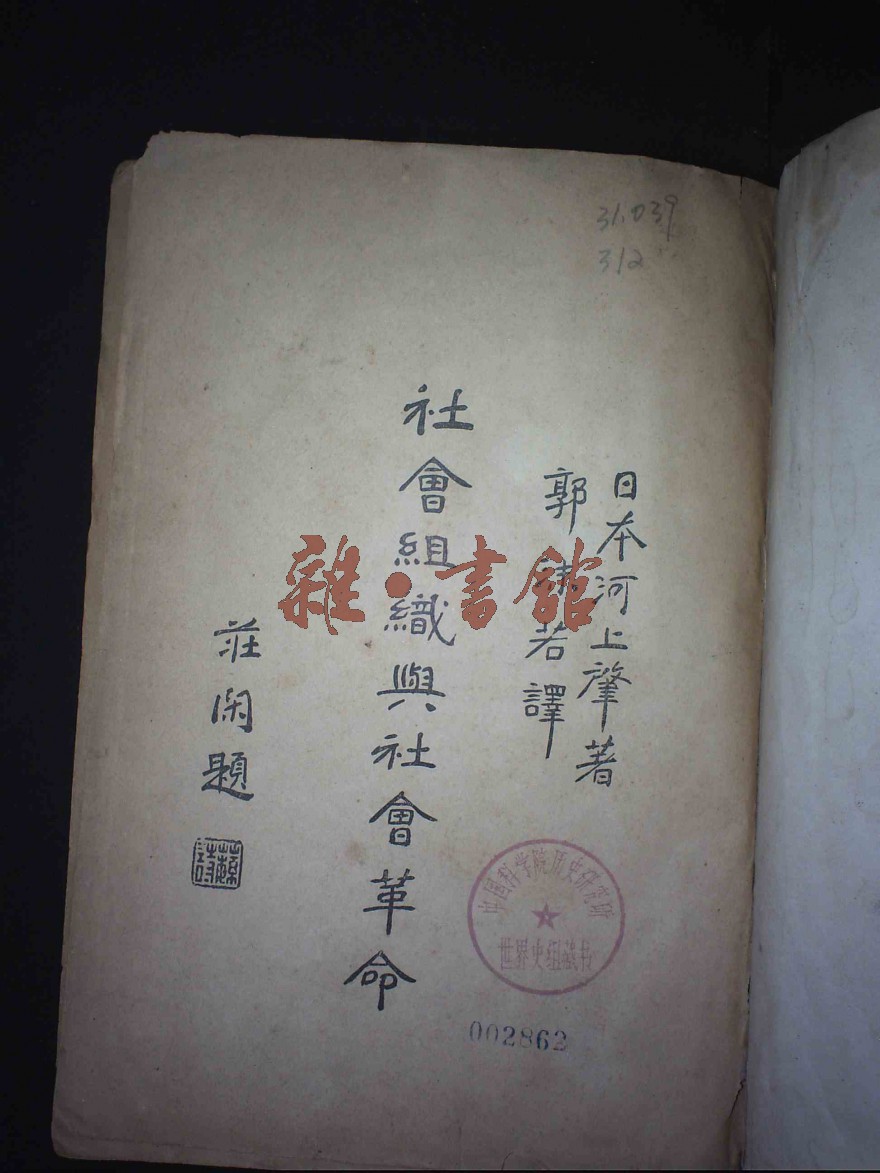 31.039
312
日本河上肇著
郭沫若譯
社會組織與社會革命
莊閑題
雜·書館
中国科学院历史研究所
世界史组藏书
002862